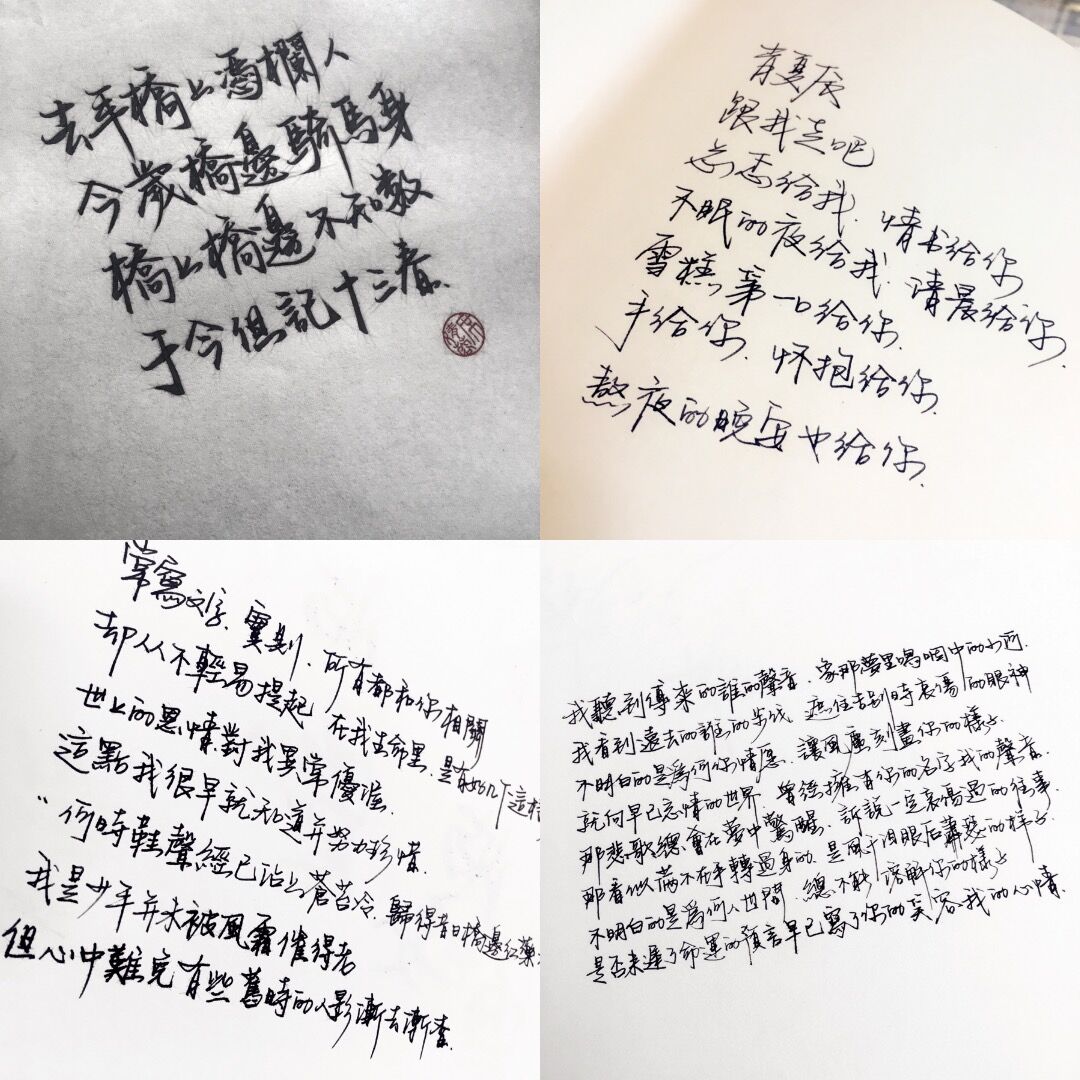 去年橋上憑欄人
今歲橋邊騎馬身
橋上橋邊不知數
于今俱記十三春
青夏辰
跟我走吧
忐忑给我，情书给你
不眠的夜给我，清晨给你
雪糕第一口给你
手给你，怀抱给你
熬夜的晚安也给你
常寫文字，實則，所有都和你相關
却从不輕易提起 在我生命里，是有如你下這
世上的恩情對我異常優渥
這點我很早就知道并努力珍惜
“何時鞋聲經已沾上蒼苔冷，歸得昔日橋邊紅藥
我是少年并未被風霜催得老
但心中難免有些舊時的人影漸去漸
我聽到傳來的誰的聲音，象那夢里嗚咽中的小河
我看到遠去的誰的步伐 遮住告別時哀傷的眼神
不明白的是爲何你情愿，讓風塵刻畫你的樣子
就向早已忘情的世界，曾經擁有你的名字我的聲音
那悲歌總會在夢中驚醒，訴說一定哀傷過的往事
那看似滿不在乎轉過身的，是風干泪眼后蕭瑟的样子
不明白的是爲何人世間 總不能溶解你的樣子
是否來遲了命運的預言早已寫了你的笑容我的心情